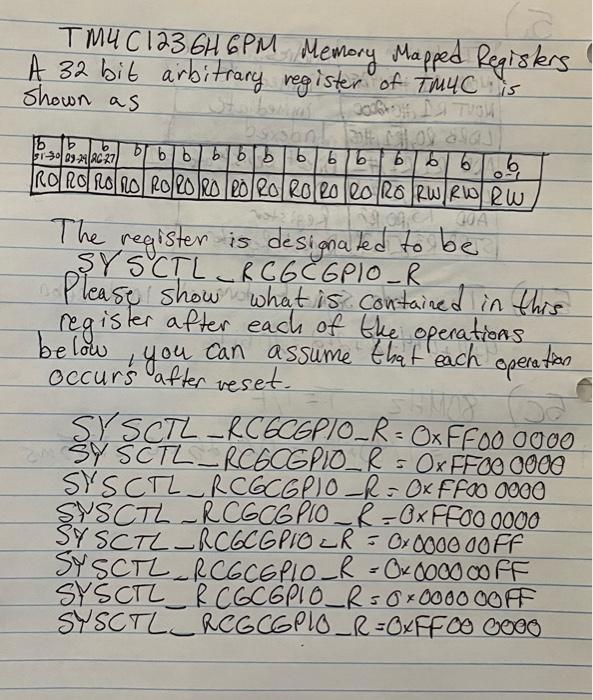 TM4C1236H6PM Memory Mapped Registers
A 32 bit arbitrary register of TM4C is
shown as
b b b b b b b b b b b b b b b b
31-30 29-29 0-1
RO RO RO RO RO RO RO RO RO RO RO RO RO RW RW RW
The register is designated to be
SYSCTL_RCGCGPIO_R
Please show what is contained in this
register after each of the operations
below, you can assume that each operation
occurs after reset.
SYSCTL_RCGCGPIO_R = 0xFF00 0000
SYSCTL_RCGCGPIO_R = 0xFF00 0000
SYSCTL_RCGCGPIO_R = 0xFF00 0000
SYSCTL_RCGCGPIO_R = 0xFF00 0000
SYSCTL_RCGCGPIO_R = 0x000000FF
SYSCTL_RCGCGPIO_R = 0x000000FF
SYSCTL_RCGCGPIO_R = 0x000000FF
SYSCTL_RCGCGPIO_R = 0xFF00 0000